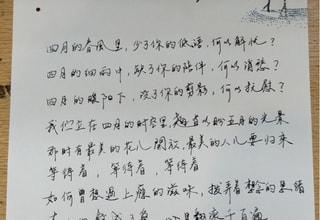 四月的春风里，少了你的低语，何以解忧？
四月的细雨中，缺了你的陪伴，何以消愁？
四月的暖阳下，没了你的剪影，何以抚慰？
我们立在四月的时空里，盼五月的光景
那时有最美的花儿开放，最美的人儿要归来
等待着，等待着，等待着
如何曾想过上瘾的滋味，拨弄着想念的思绪